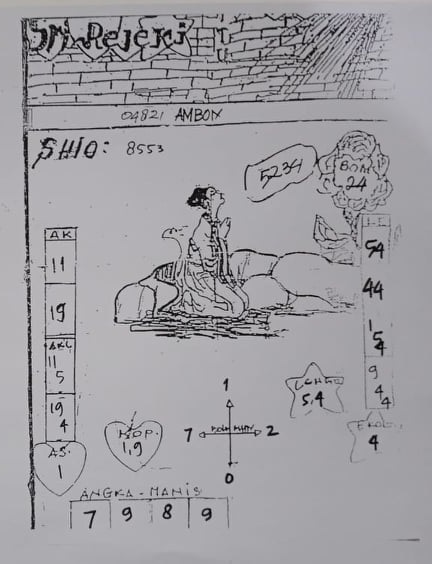 Sri Rejeki
04821 AMBON
SHIO: 8553
5234
BOM
24
AK
11
19
AKL
11
5
19
4
AS
1
KOP
1,9
1
7
2
0
54
44
15
4
9
4
4
5,4
EKOR
4
ANGKA-MANIS
7 9 8 9